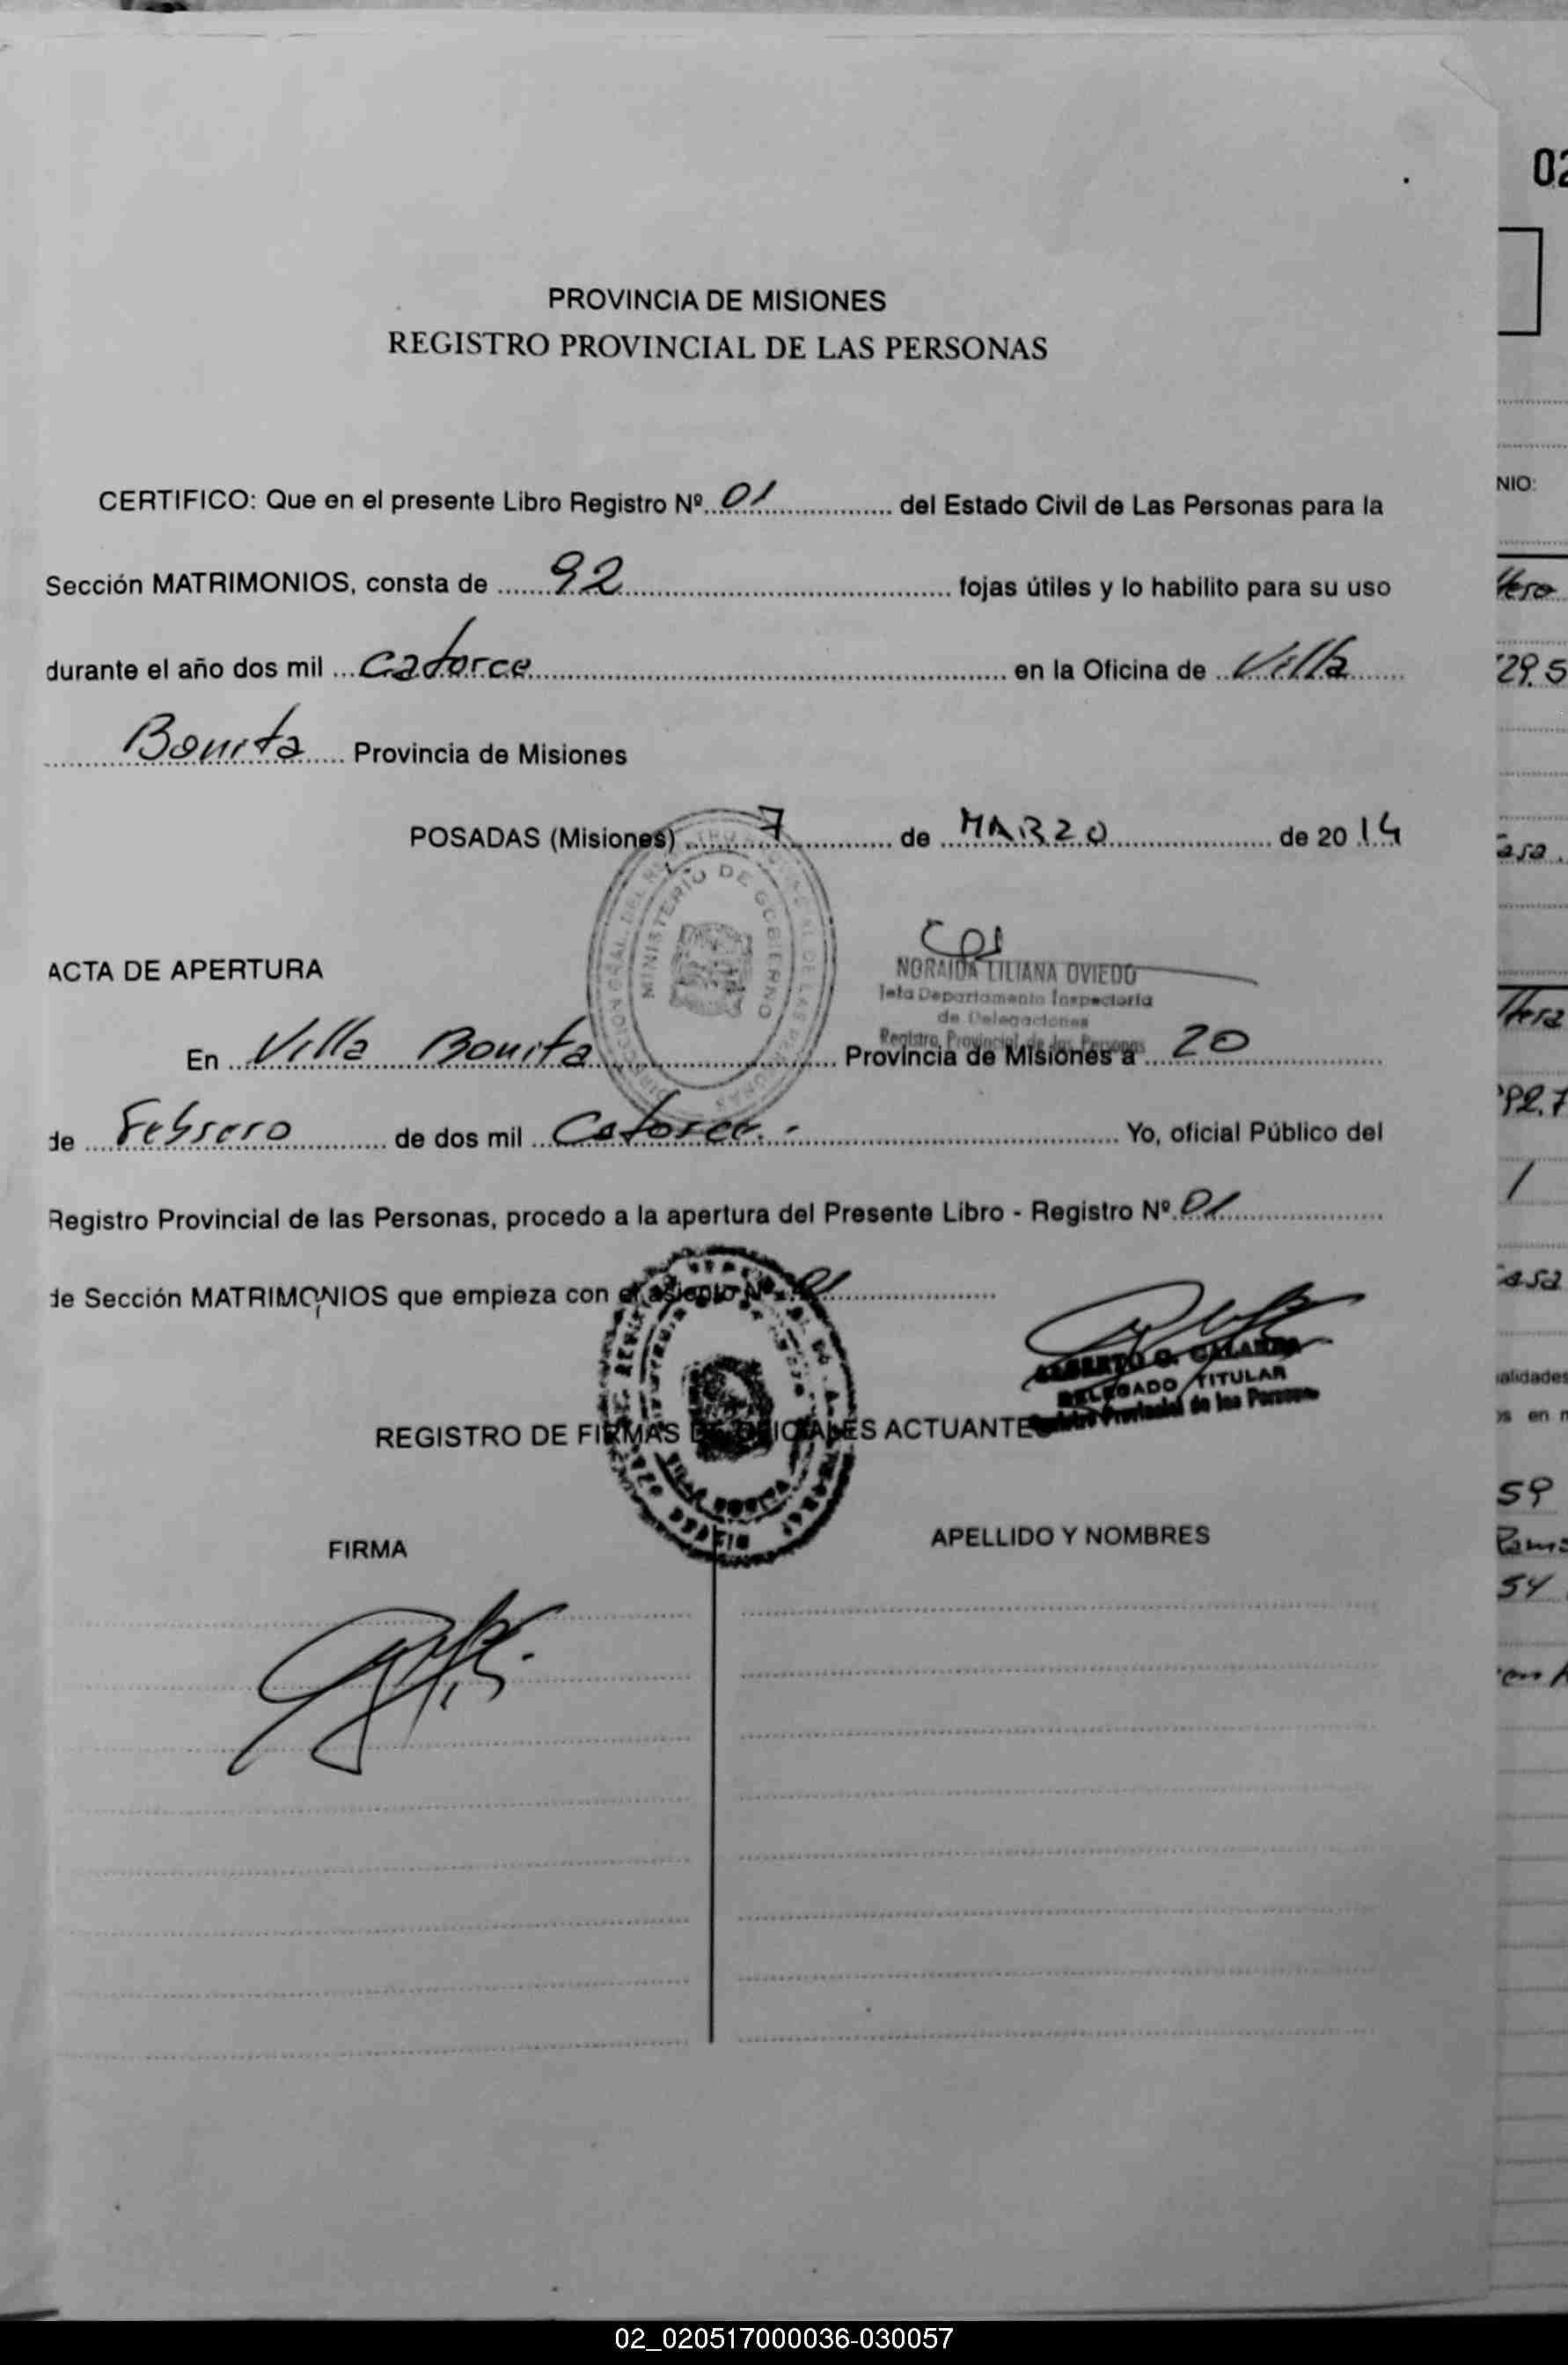 PROVINCIA DE MISIONES
REGISTRO PROVINCIAL DE LAS PERSONAS
CERTIFICO: Que en el presente Libro Registro Nº 01 del Estado Civil de Las Personas para la
Sección MATRIMONIOS, consta de 92 fojas útiles y lo habilito para su uso
durante el año dos mil Catorce en la Oficina de Villa
Bonita Provincia de Misiones
POSADAS (Misiones) 7 de MARZO de 2014
MINISTERIO DE GOBIERNO
NORAIDA LILIANA OVIEDO
Jefa Departamento Inspectoría
de Delegaciones
Registro Provincial de las Personas
ACTA DE APERTURA
En Villa Bonita Provincia de Misiones a 20
de Febrero de dos mil Catorce.- Yo, oficial Público del
Registro Provincial de las Personas, procedo a la apertura del Presente Libro - Registro Nº 01
de Sección MATRIMONIOS que empieza con el asiento Nº 01
ALBERTO G.
DELEGADO TITULAR
Registro Provincial de las Personas
REGISTRO DE FIRMAS DE OFICIALES ACTUANTE
FIRMA
APELLIDO Y NOMBRES
02
NIO:
29.5
asa.
92.7
1
asa
alidades
en
59
54
02_020517000036-030057